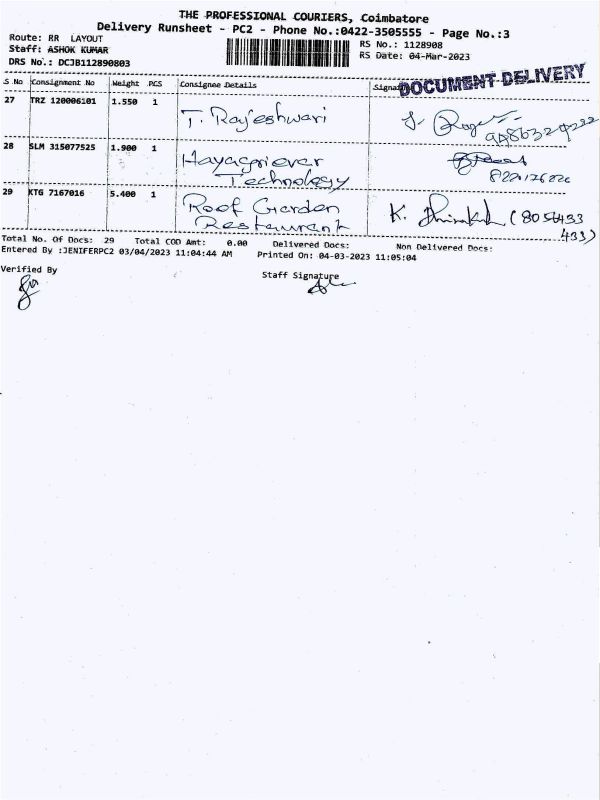 THE PROFESSIONAL COURIERS, Coimbatore
Delivery Runsheet - PC2 - Phone No.:0422-3505555 - Page No.:3
Route: RR LAYOUT
RS No.: 1128908
Staff: ASHOK KUMAR
RS Date: 04-Mar-2023
DRS No.: DCJB112890803
DOCUMENT DELIVERY
S No Consignment No Weight PCS Consignee Details
27 TRZ 120006101 1.550 1 T. Rajeshwari
28 SLM 315077525 1.900 1 Hayagriever
Technology
29 KTG 7167016 5.400 1 Roof Garden
Restaurant
K. (8056433
433)
Total No. Of Docs: 29 Total COD Amt: 0.00 Delivered Docs: Non Delivered Docs:
Entered By :JENIFERPC2 03/04/2023 11:04:44 AM Printed On: 04-03-2023 11:05:04
Verified By
Staff Signature